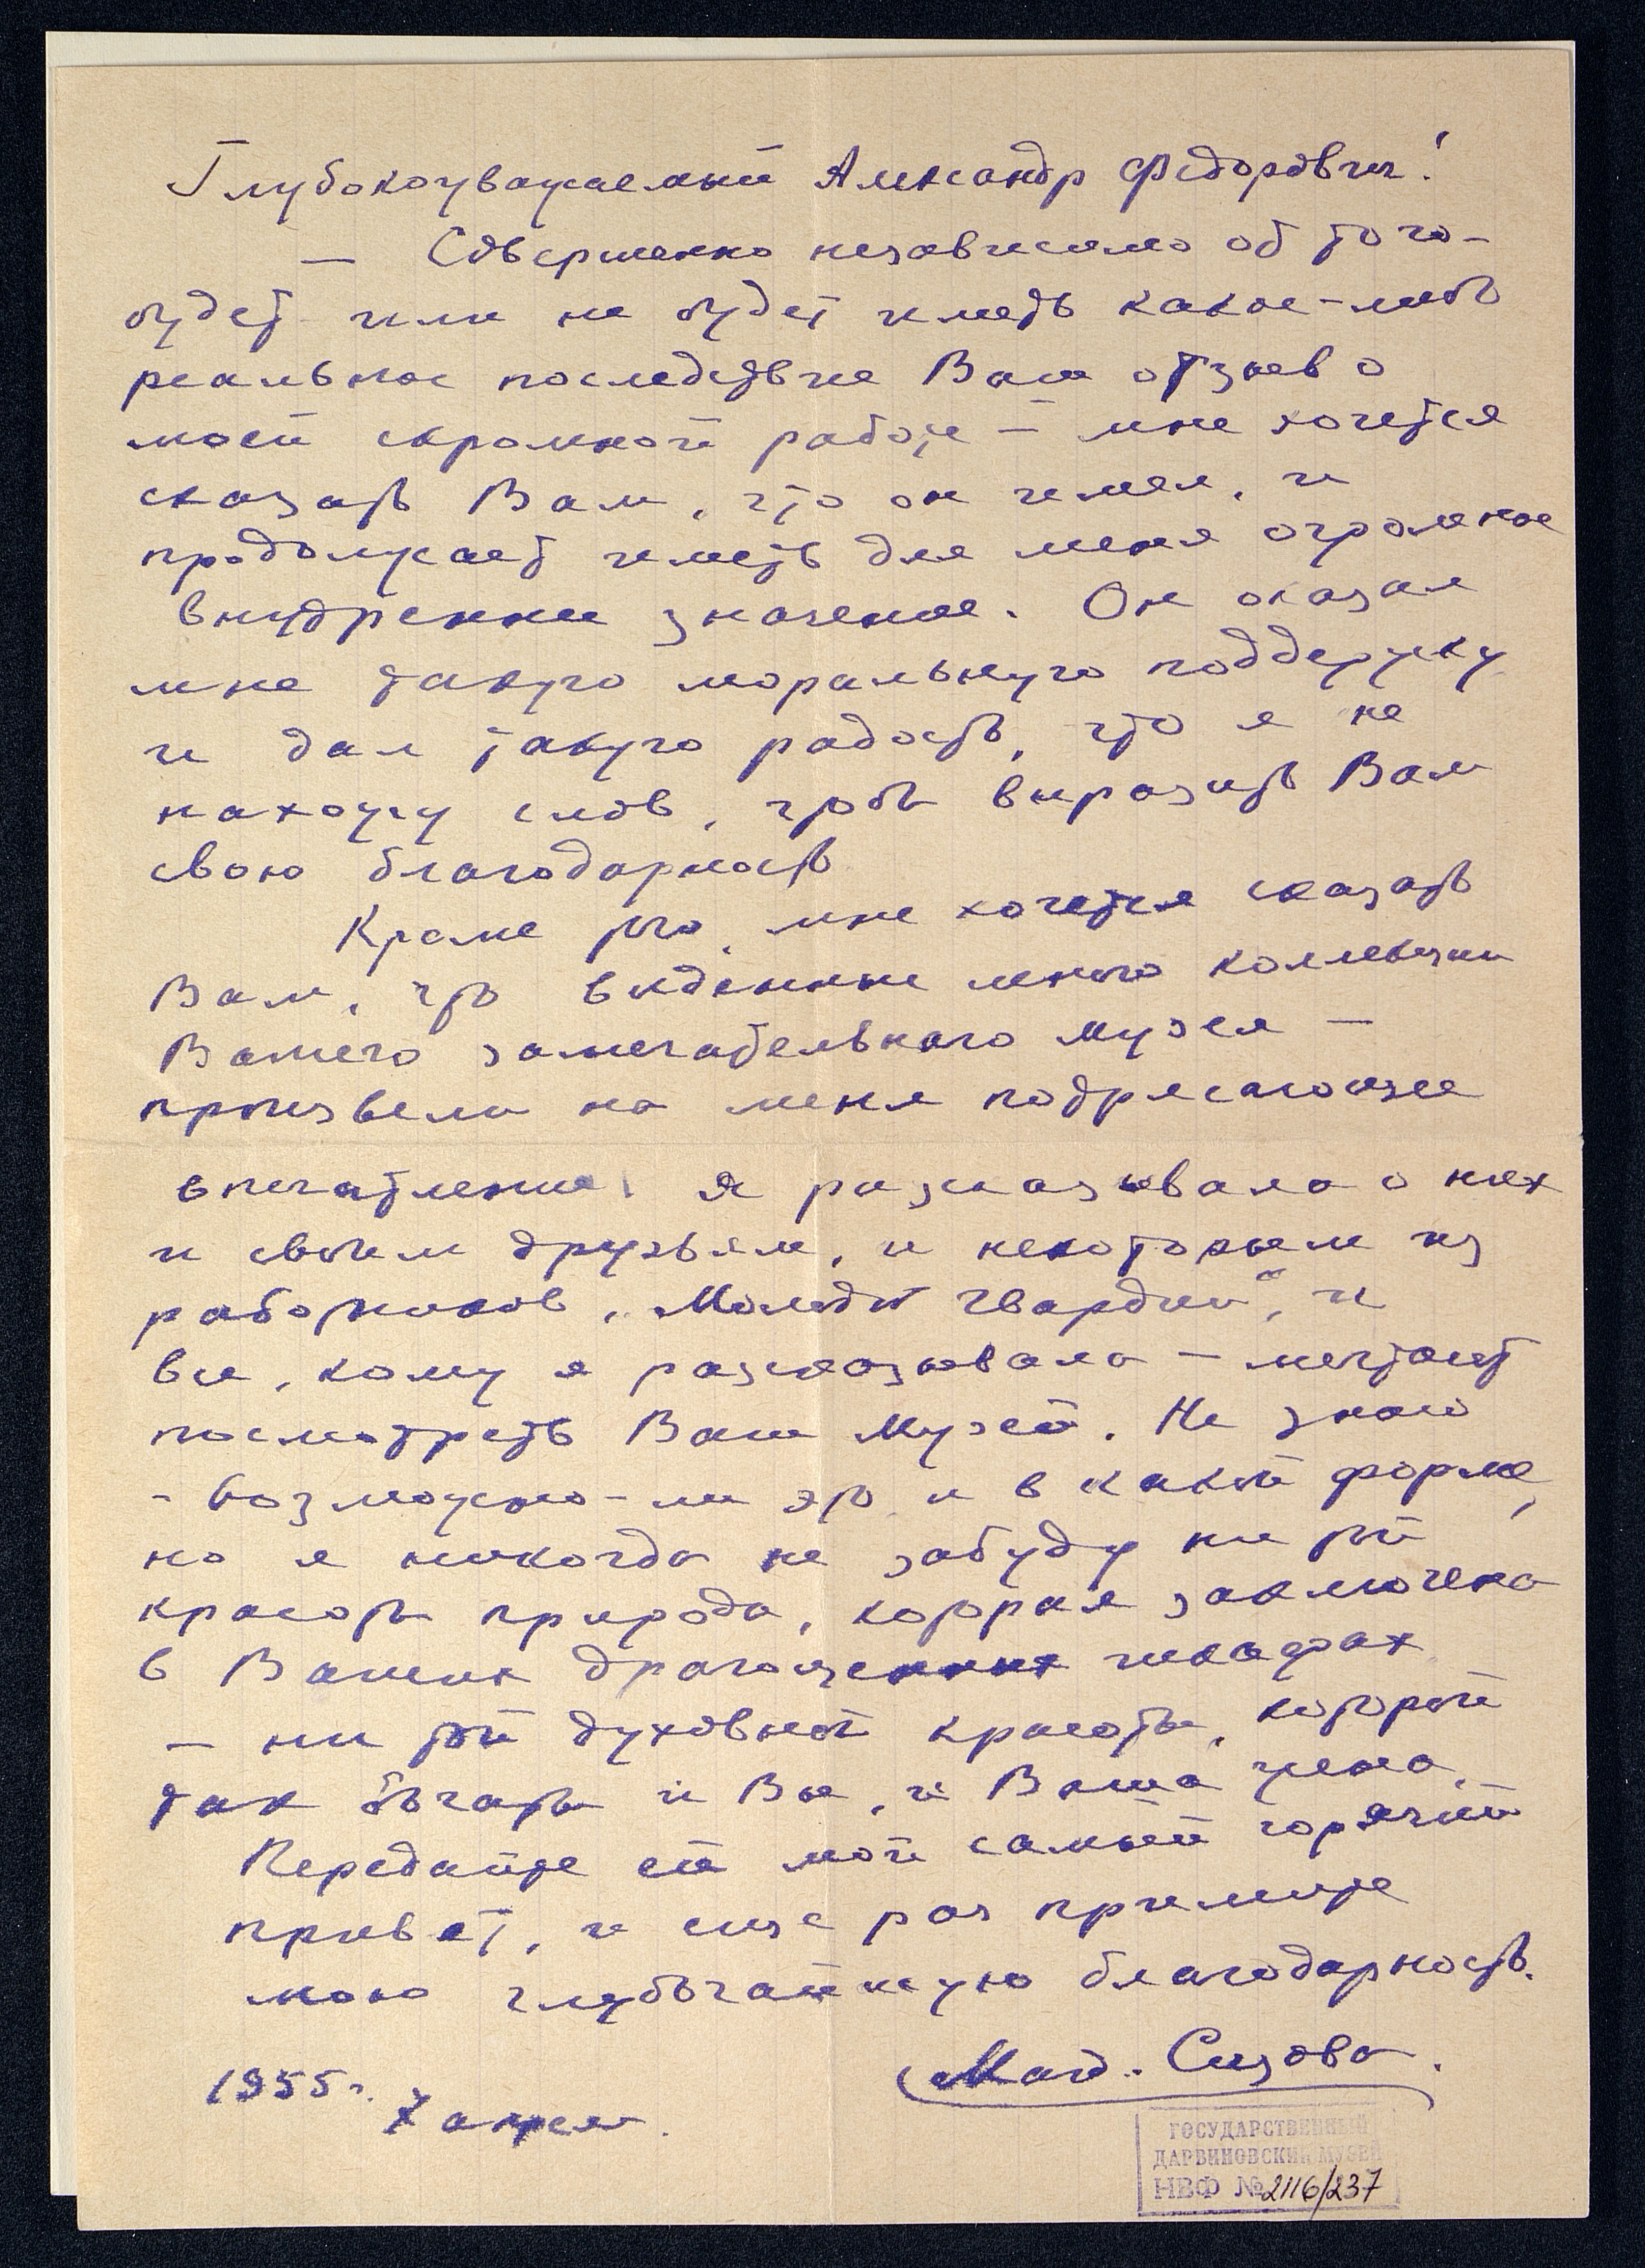 Глубокоуважаемый Александр Федорович!
— Совершенно независимо от того –
будет или не будет иметь какое-либо
реальное последствие Ваш отзыв о
моей скромной работе — мне хочется
сказать Вам, что он имел, и
продолжает иметь для меня огромное
внутреннее значение. Он оказал
мне такую моральную поддержку
и дал такую радость, что я не
нахожу слов, чтобы выразить Вам
свою благодарность
Кроме того, мне хочется сказать
Вам, что виденные мною коллекции
Вашего замечательного музея —
произвели на меня потрясающее
впечатление. Я рассказывала о них
и своим друзьям, и некоторым из
работников „Молодой Гвардии“, и
все, кому я рассказывала — мечтают
посмотреть Ваш Музей. Не знаю
- возможно-ли это и в какой форме,
но я никогда не забуду ни той
красоты природы, которая заключена
в Ваших драгоценных шкафах
— ни той духовной красоты, которой
так богаты и Вы, и Ваша жена.
Передайте ей мой самый горячий
привет, и еще раз примите
мою глубочайшую благодарность.
Магд. Сизова.
1955 г. 7 апреля.
ГОСУДАРСТВЕННЫЙ
ДАРВИНОВСКИЙ МУЗЕЙ
НВФ № 2116/237